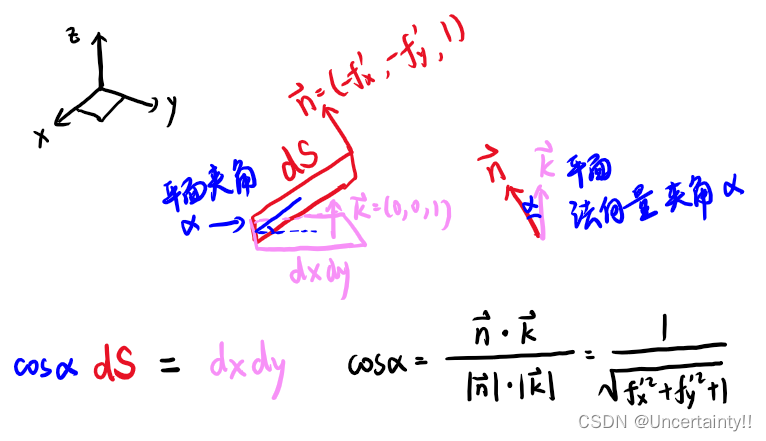 z
x
y
n⃗=(-f'x, -f'y, 1)
dS
平面夹角
α→
k⃗=(0,0,1)
dxdy
n⃗
k⃗
α
平面
法向量夹角α
cosα dS = dxdy
cosα = n⃗·k⃗ / |n⃗|·|k⃗| = 1 / √f'x²+f'y²+1
CSDN @Uncertainty!!